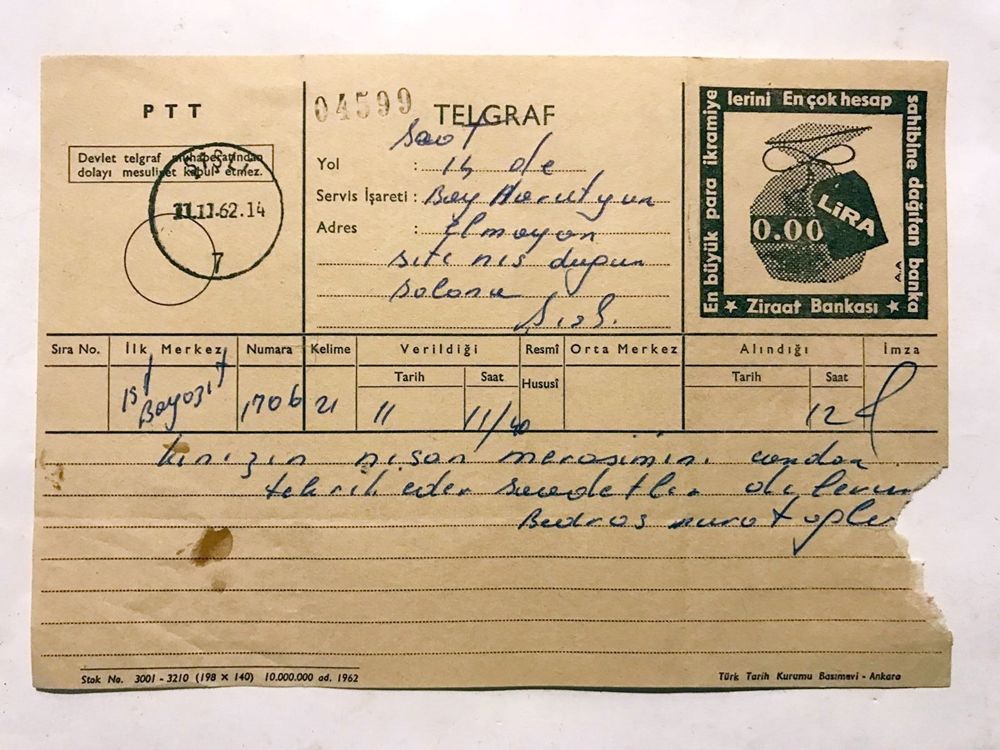 PTT
Devlet telgraf muhaberatından
dolayı mesuliyet kabul etmez.
ŞİŞLİ
11.11.62.14
7
04599
TELGRAF
Saat
Yol : 14 de
Servis İşareti : Bay Harutyun
Adres : Elmayan
site nis dugun
salonu
Şişli
En büyük para ikramiye
lerini En çok hesap
sahibine dağıtan banka
0.00
LİRA
A.A
★ Ziraat Bankası ★
Sıra No. İlk Merkez Numara Kelime Verildiği Resmî Orta Merkez Alındığı İmza
Tarih Saat Hususî Tarih Saat
ist
Beyazıt 1706 21 11 11/40 12
kınızın nişan merasimini candan
tebrik eder saadetler dilerim
Bedros
Stok No. 3001 - 3210 (198 X 140) 10.000.000 ad. 1962
Türk Tarih Kurumu Basımevi - Ankara